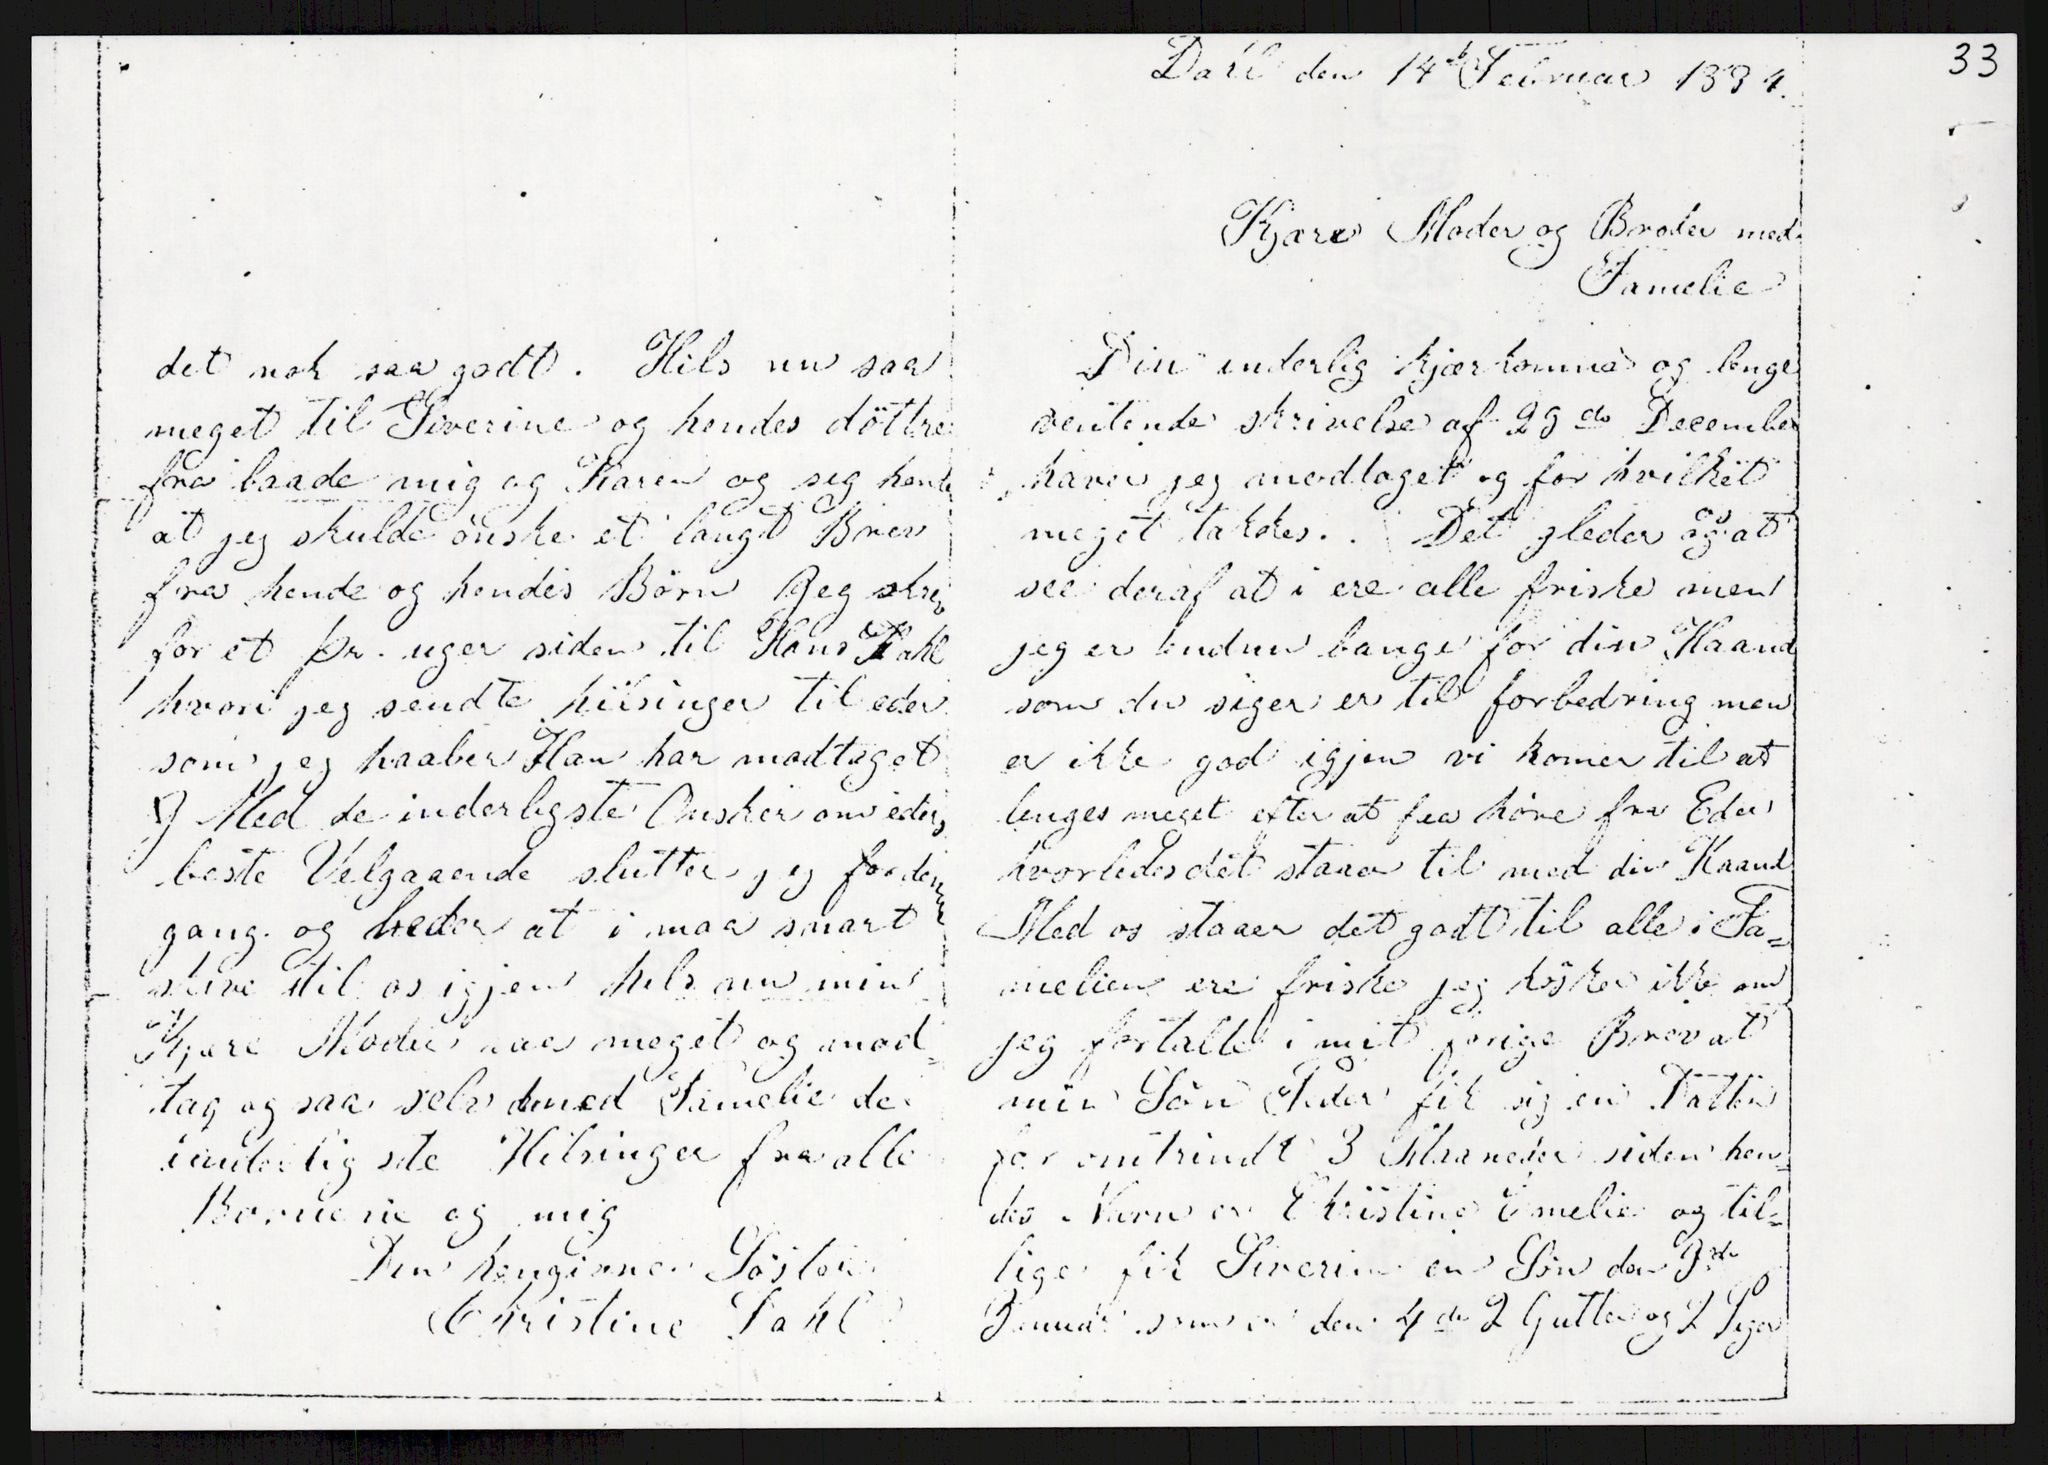 33
Dahl den 14de Februar 1884.
Kjære Moder og Broder med
Familie
Din inderlig kjærkomne og lenge
ventende skrivelse af 29de December
haver jeg modtaget og for hvilket
meget takkes. Det gleder os at
see deraf at i ere alle friske men
jeg er endnu bange for din Haand
som du siger er til forbedring men
er ikke god igjen vi komer til at
lenges meget efter at faa høre fra Eder
hvorledes det staaer til med din Haand
Med os staaer det godt til alle i Fa=
melien ere friske jeg husker ikke om
jeg fortalte i mit forige Brev at
min Sön Peder fik sig en Datter
for omtrindt 3 Maaneder siden hen
des Navn er Christine Emelie og til=
lige fik Siverine en Sön den 3de
Januar som er den 4de 2 Gutter og 2 Piger
det nok saa godt. Hils nu saa
meget til Siverine og hendes döttre
fra baade mig og Karen og seg hende
at jeg skulde önske et langt Brev
fra hende og hendes Börn Jeg skrev
for et pr. uger siden til Hans Dahl
hvori jeg sendte hilsinger til eder
som jeg haaber Han har modtaget
Med de inderligste Ønsker om eders
beste Velgaaende slutter jeg for denne
gang og beder at i maa snart
skrive til os igjen hils nu min
Kjære Moder saa meget og mod=
tag og saa selv med Familie de
inderligste Hilsinger fra alle
Bornene og mig
Din hengivne Söster
Christine Dahl